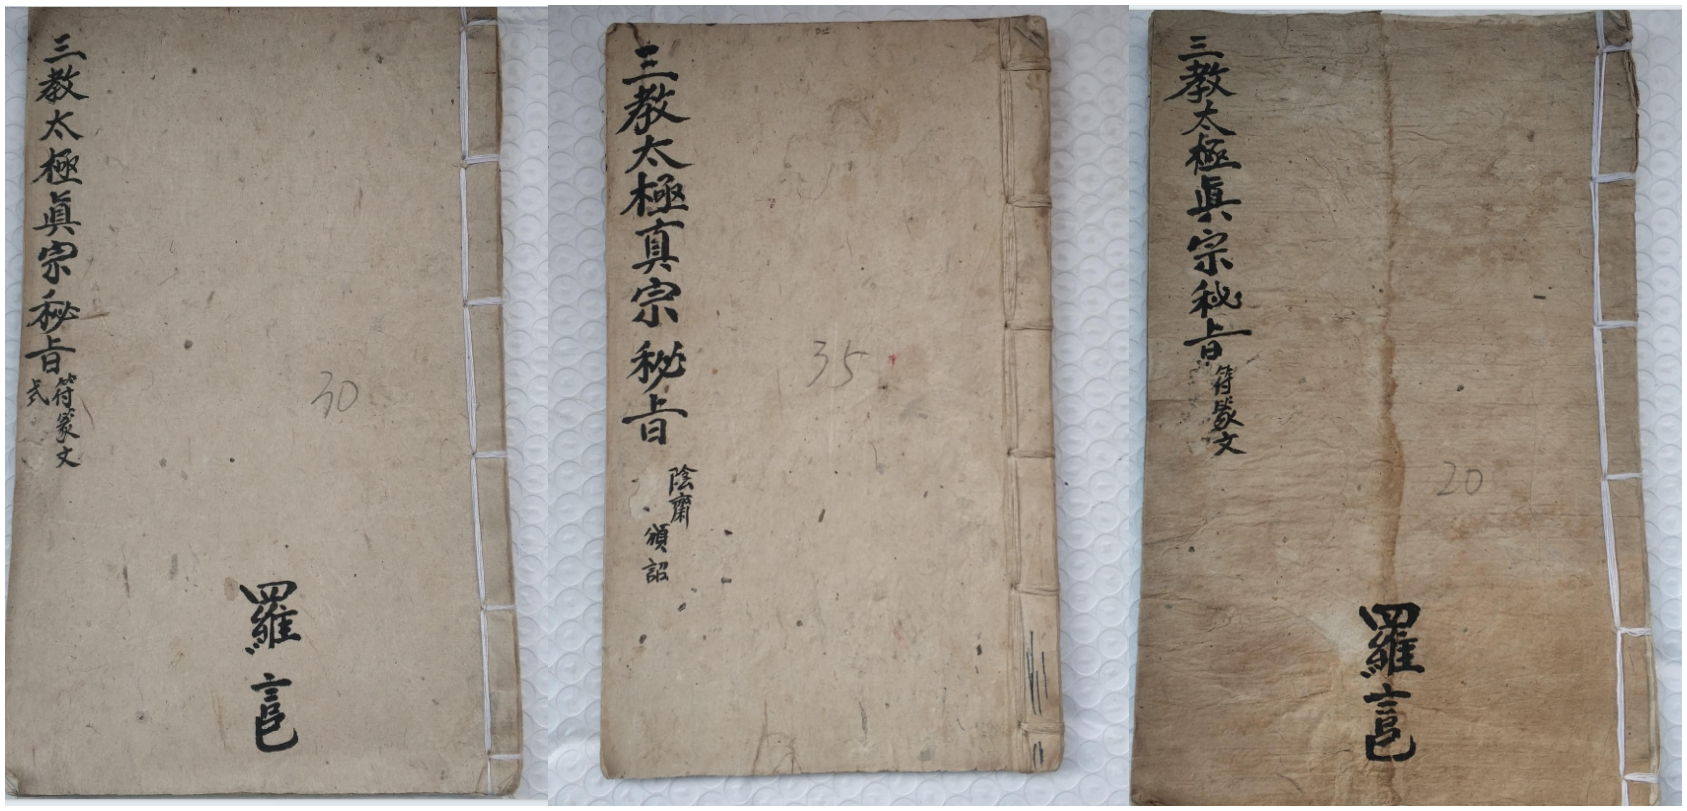 三教太極眞宗秘旨
符篆文
式
30
羅
三教太極真宗秘旨
陰齋
頒詔
35
三教太極眞宗秘旨
符篆文
20
羅